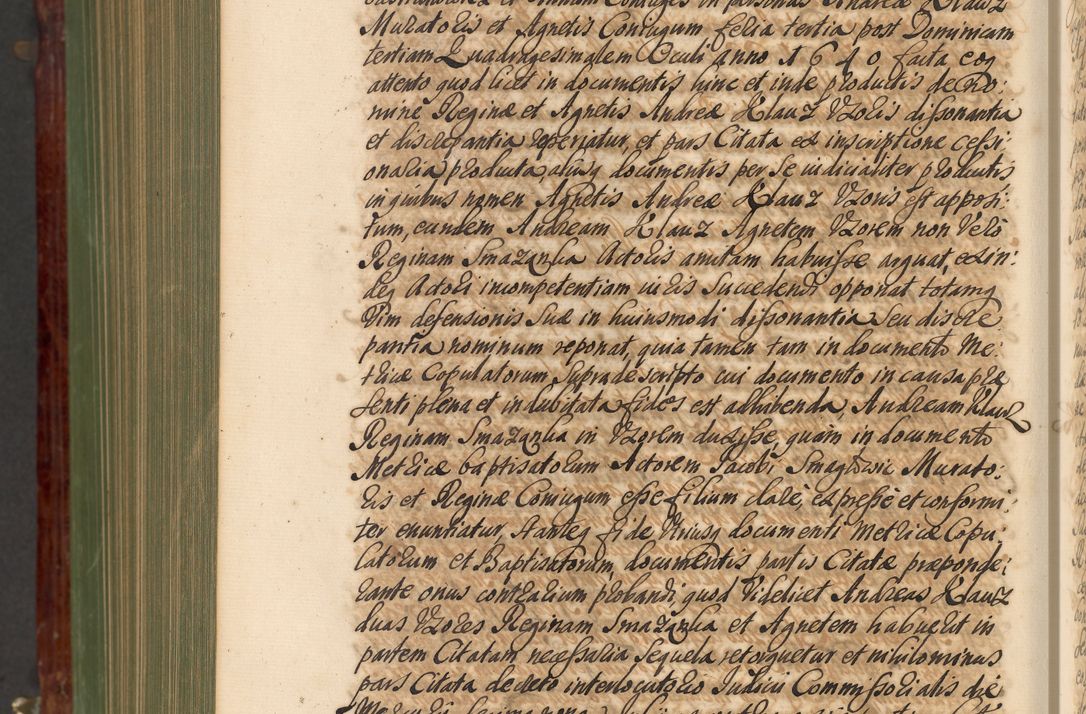 Muratoris et Agnetis Coniugum feria tertia post Dominicam
tertiam Quadragesimalem Oculi anno 1640 facta coq
attento quod licet in documentis hinc et inde productis de No:
mine Reginæ et Agnetis Andreæ Klauz Uxoris dissonantia
et discrepantia reperiatur, et pars Citata ex inscriptione cessi:
onaria producta alijsq documentis per se iudicialiter productis
in quibus nomen Agnetis Andreæ Klauz Uxoris est apposi:
tum, eundem Andream Klauz Agnetem Uxorem non Vero
Reginam Smazanka Actoris amitam habuisse arguat, exin:
deq Actori incompetentiam iuris Succedendi opponat totamq
Vim defensionis Suæ in huiusmodi dissonantia Seu discre:
pantia nominum reponat, quia tamen tam in documento Me:
tricæ Copulatorum Supradescripto cui documento in causa præ
senti plena et indubitata fides est adhibenda, Andream Klauz
Reginam Smazanka in Uxorem duxisse, quam in documento
Metricæ baptisatorum Actorem Jacobi Murato:
ris et Reginæ Coniugum esse filium clare, expresse et conformi:
ter enuntiatur, Stanteq fide Utriusq documenti Metricæ Copu:
latorum et Baptisatorum, documentis partis Citatæ præponde:
rante onus contrarium probandi quod Videlicet Andreas Klauz
duas Uxores Reginam Smazanka et Agnetem habuerit in
partem Citatam necessaria Sequela retorquetur et nihilominus
pars Citata decreto interlocutorio Iudicij Commissorialis die